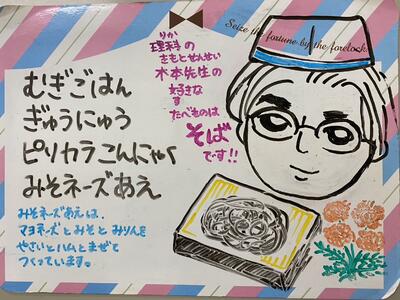 Seize the fortune by the forelock.
りか
理科の
きもとせんせい
木本先生の
好きな
す
たべものは
そば
です!!
むぎごはん
ぎゅうにゅう
ピリカラこんにゃく
みそネーズあえ
みそネーズあえは、
マヨネーズとみそとみりんを
やさいとハムとまぜて
つくっています。